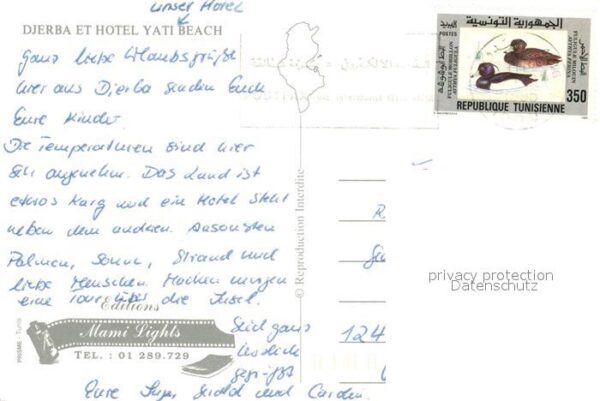 unser Hotel
DJERBA ET HOTEL YATI BEACH
Ganz liebe Urlaubsgrüße
hier aus Djerba senden Euch
Eure Kinder.
Die Temperaturen sind hier
sehr angenehm. Das Land ist
etwas karg und ein Hotel steht
neben dem anderen. Ansonsten
Palmen, Sonne, Strand und
liebe Menschen. Machen morgen
eine Tour über die Insel.
Seid ganz
herzlich
gegrüßt
Eure und
Editions
Mami Lights
TEL. : 01 289.729
PRISME - Tunis
© Reproduction Interdite
الجمهورية التونسية
POSTES
FULIGULE MORILLON
AYTHYA FULIGULA
FULIGULE MILOUIN
AYTHYA FERINA
REPUBLIQUE TUNISIENNE
350
124
privacy protection
Datenschutz